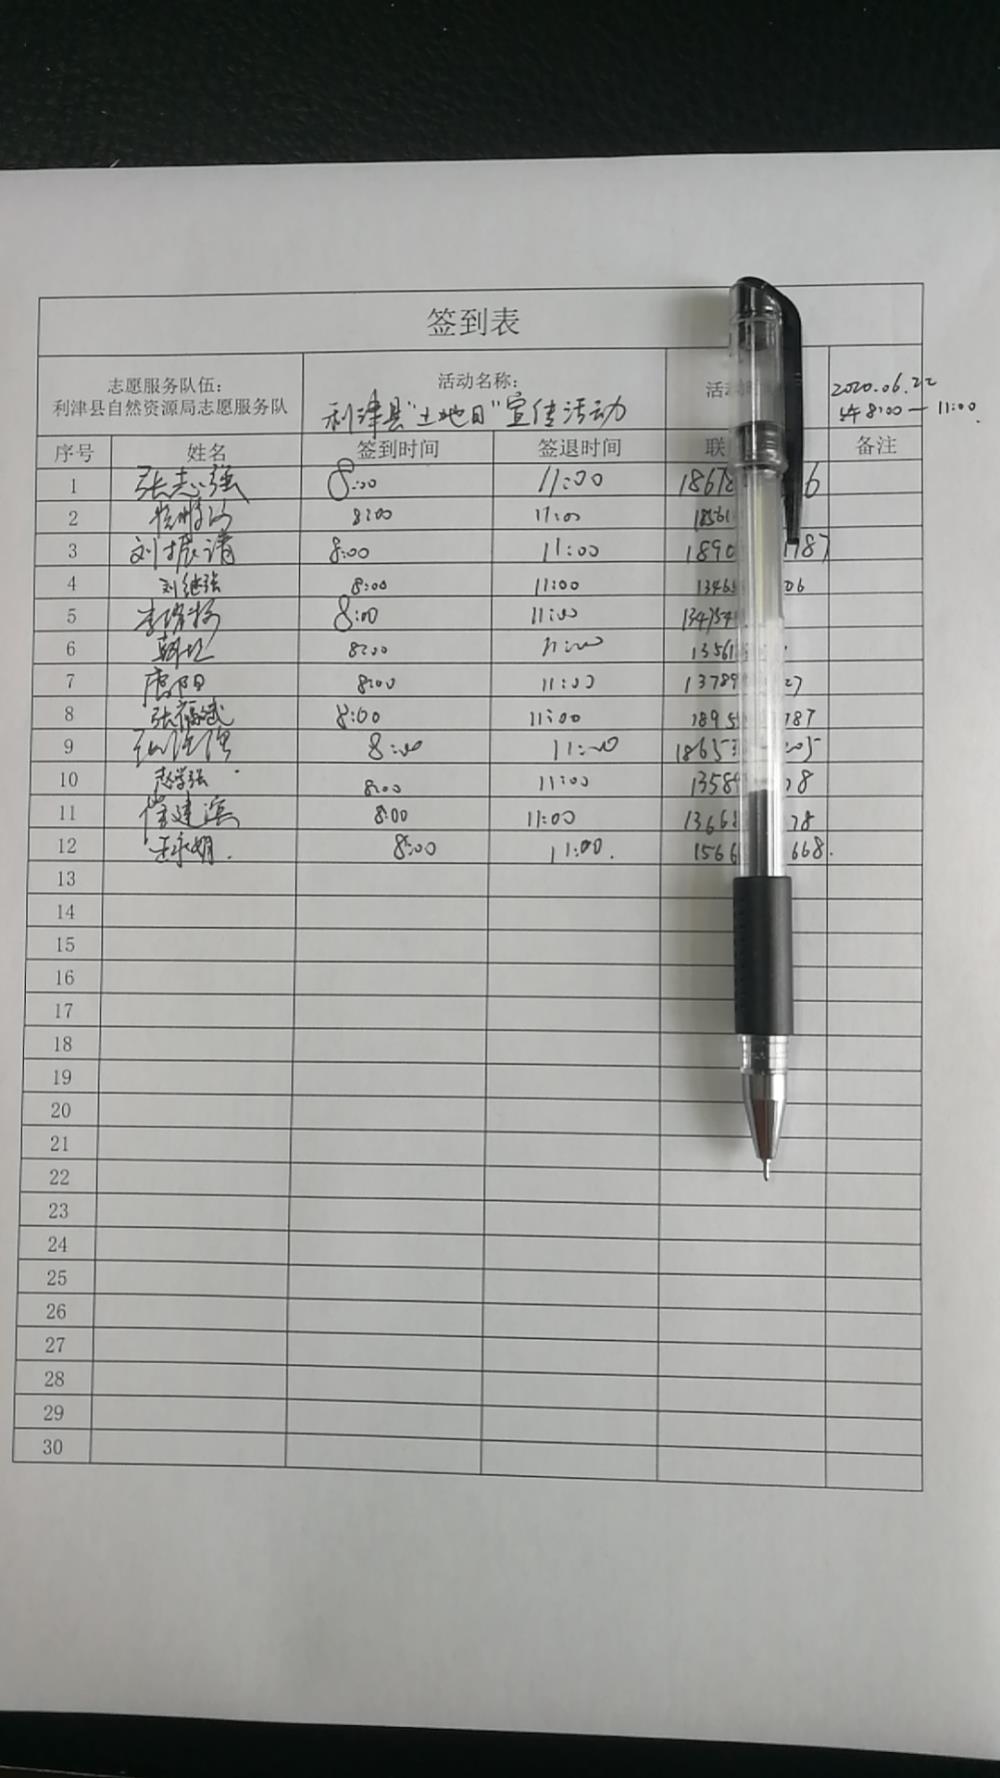 签到表
志愿服务队伍： 活动名称： 活动时
利津县自然资源局志愿服务队 利津县"土地日"宣传活动 2020.06.22
上午8:00—11:00
序号 姓名 签到时间 签退时间 联 备注
1 张志强 8:00 11:00 18678 6
2 8:00 11:00 18561
3 刘振清 8:00 11:00 1890 187
4 刘继强 8:00 11:00 1346 06
5 8:00 11:00 134754
6 8:00 11:00 13561
7 唐阳 8:00 11:00 13789 27
8 张福斌 8:00 11:00 1895 187
9 8:00 11:00 18653 05
10 赵学强 8:00 11:00 13589 8
11 崔建滨 8:00 11:00 1366 78
12 王永娟 8:00 11:00 1566 668
13
14
15
16
17
18
19
20
21
22
23
24
25
26
27
28
29
30